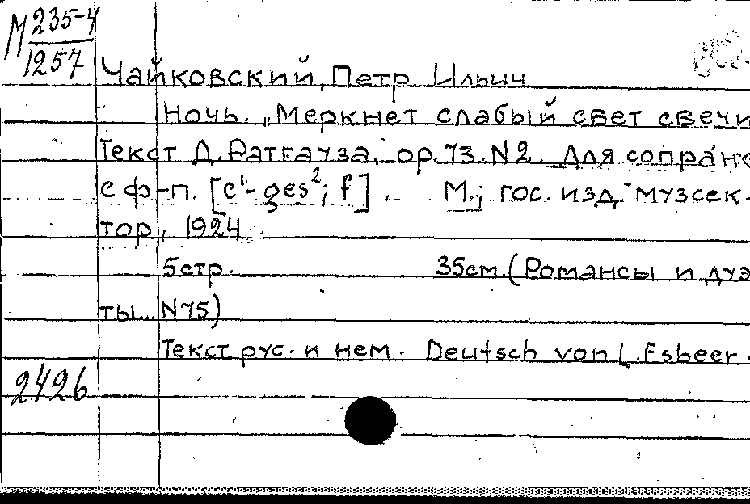 М 235-4
1257
Чайковский, Петр Ильич
Ночь. „Меркнет слабый свет свечи
Текст Д. Ратгауза, ор. 73. N2. Для сопрано
с ф-п. [c¹-ges²; f]. М.; гос. изд. музсек-
тор, 1924
5стр. 35см. (Романсы и дуэ
ты N75)
Текст рус. и нем. Deutsch von L. Esbeer.
2426